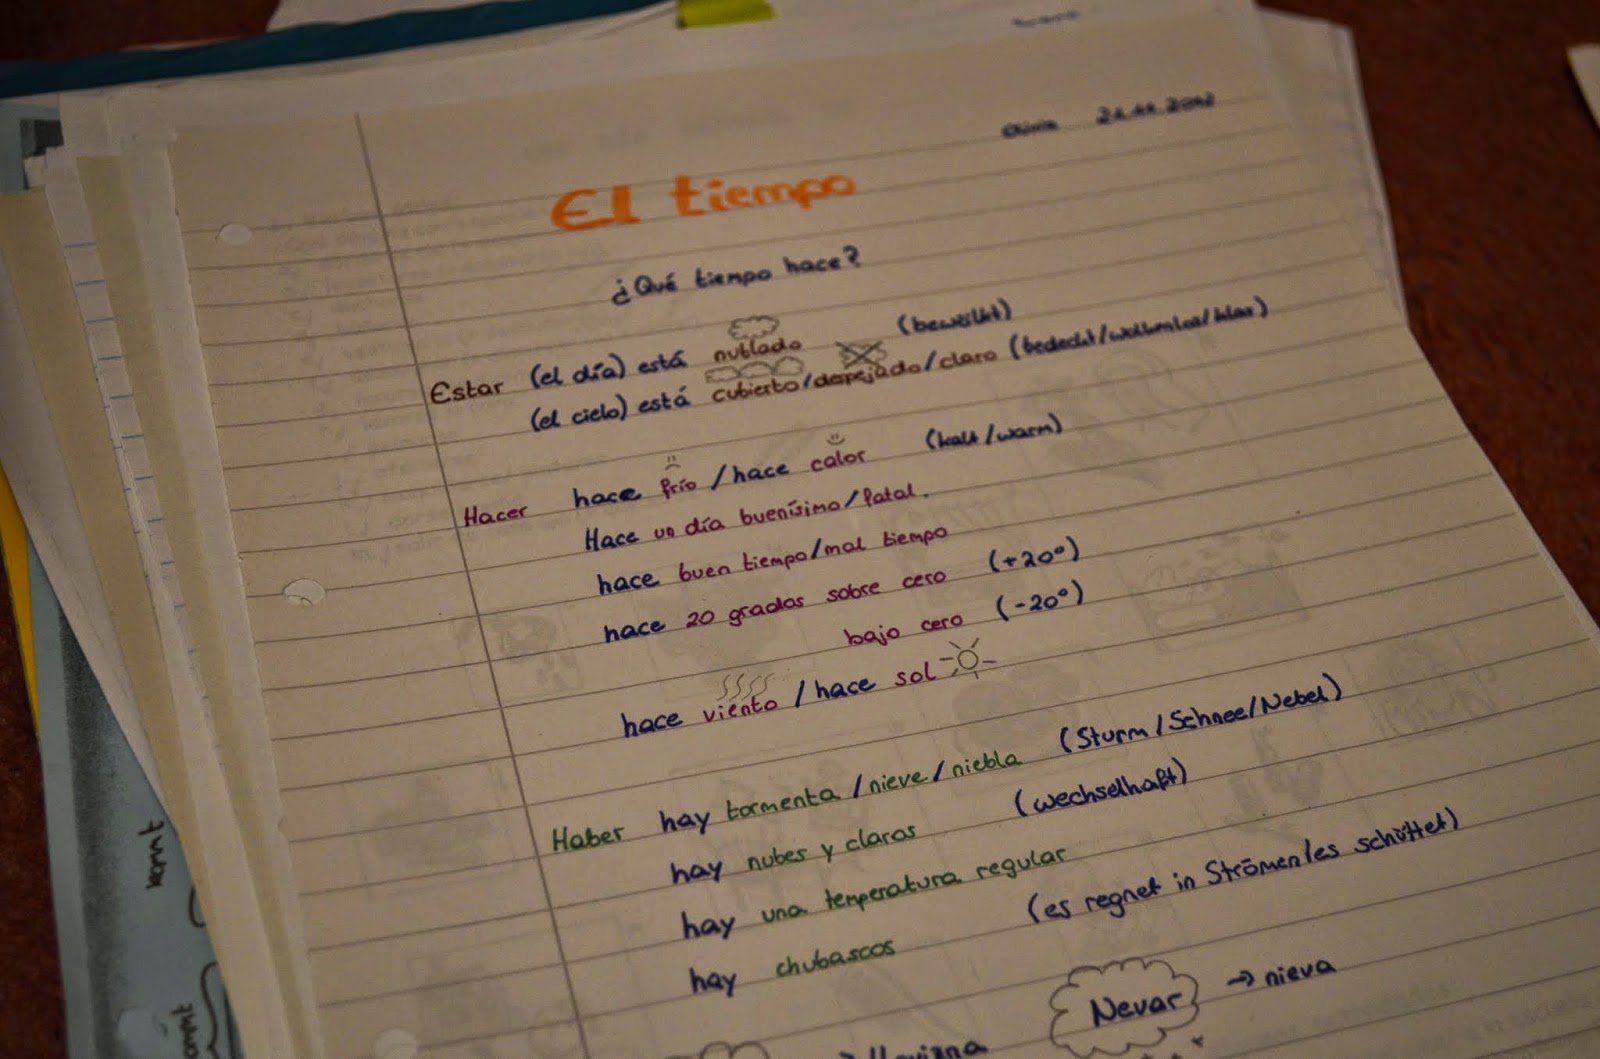 21.11.2012
El tiempo
¿Qué tiempo hace?
Estar (el día) está nublado (bewölkt)
(el cielo) está cubierto/despejado/claro (bedeckt/wolkenlos/klar)
Hacer hace frío /hace calor (kalt/warm)
Hace un día buenísimo/fatal.
hace buen tiempo/mal tiempo
hace 20 grados sobre cero (+20°)
bajo cero (-20°)
hace viento /hace sol
Haber hay tormenta /nieve/niebla (Sturm/Schnee/Nebel)
hay nubes y claros (wechselhaft)
hay una temperatura regular
hay chubascos (es regnet in Strömen/es schüttet)
Nevar → nieva